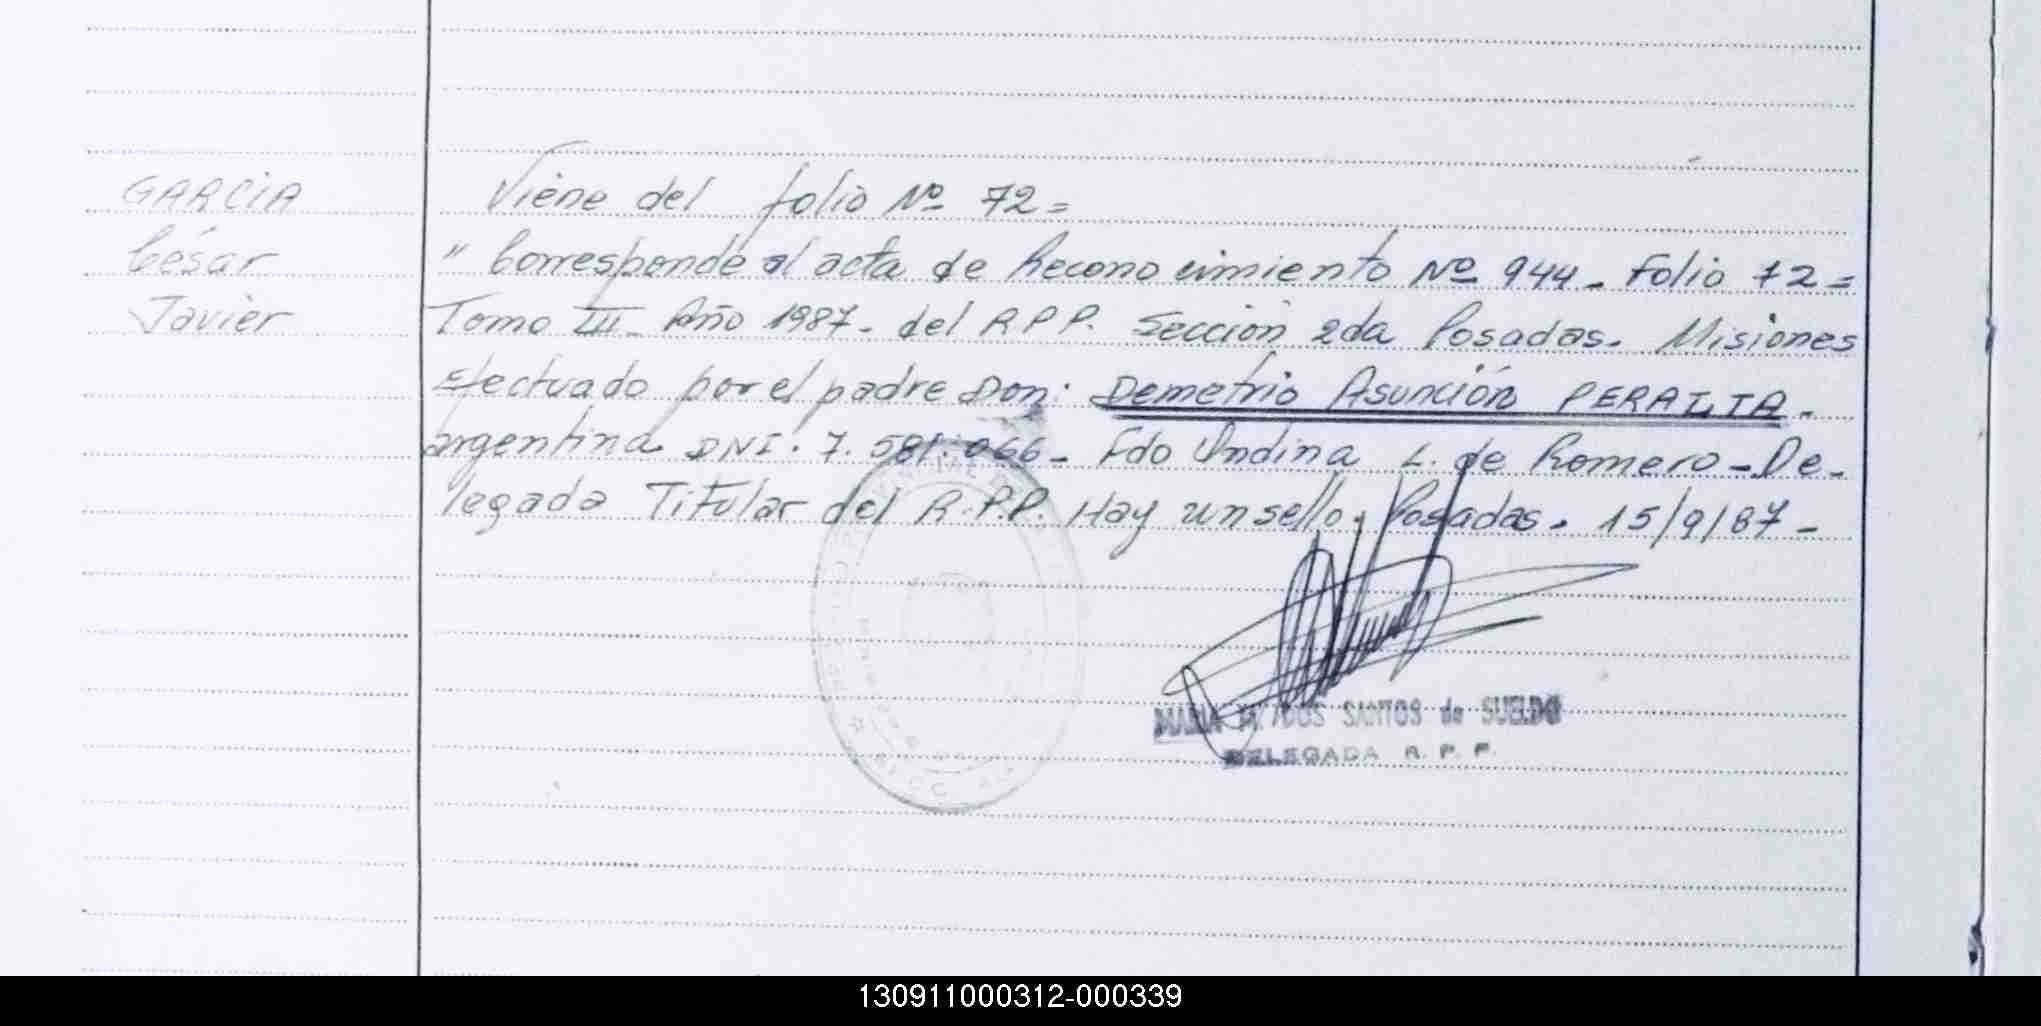 GARCIA
César
Javier
Viene del folio Nº 72=
" Corresponde al acta de Reconocimiento Nº 944- Folio 72=
Tomo III- Año 1987- del R P P. Sección 2da Posadas. Misiones
Efectuado por el padre Don: Demetrio Asunción PERALTA.
argentina DNI. 7.581.066- Fdo Undina L. de Romero-De-
legada Titular del R.P.P. Hay un sello, Posadas. 15/9/87-
MARIA DOS SANTOS de SUELDO
DELEGADA R. P. P.
130911000312-000339